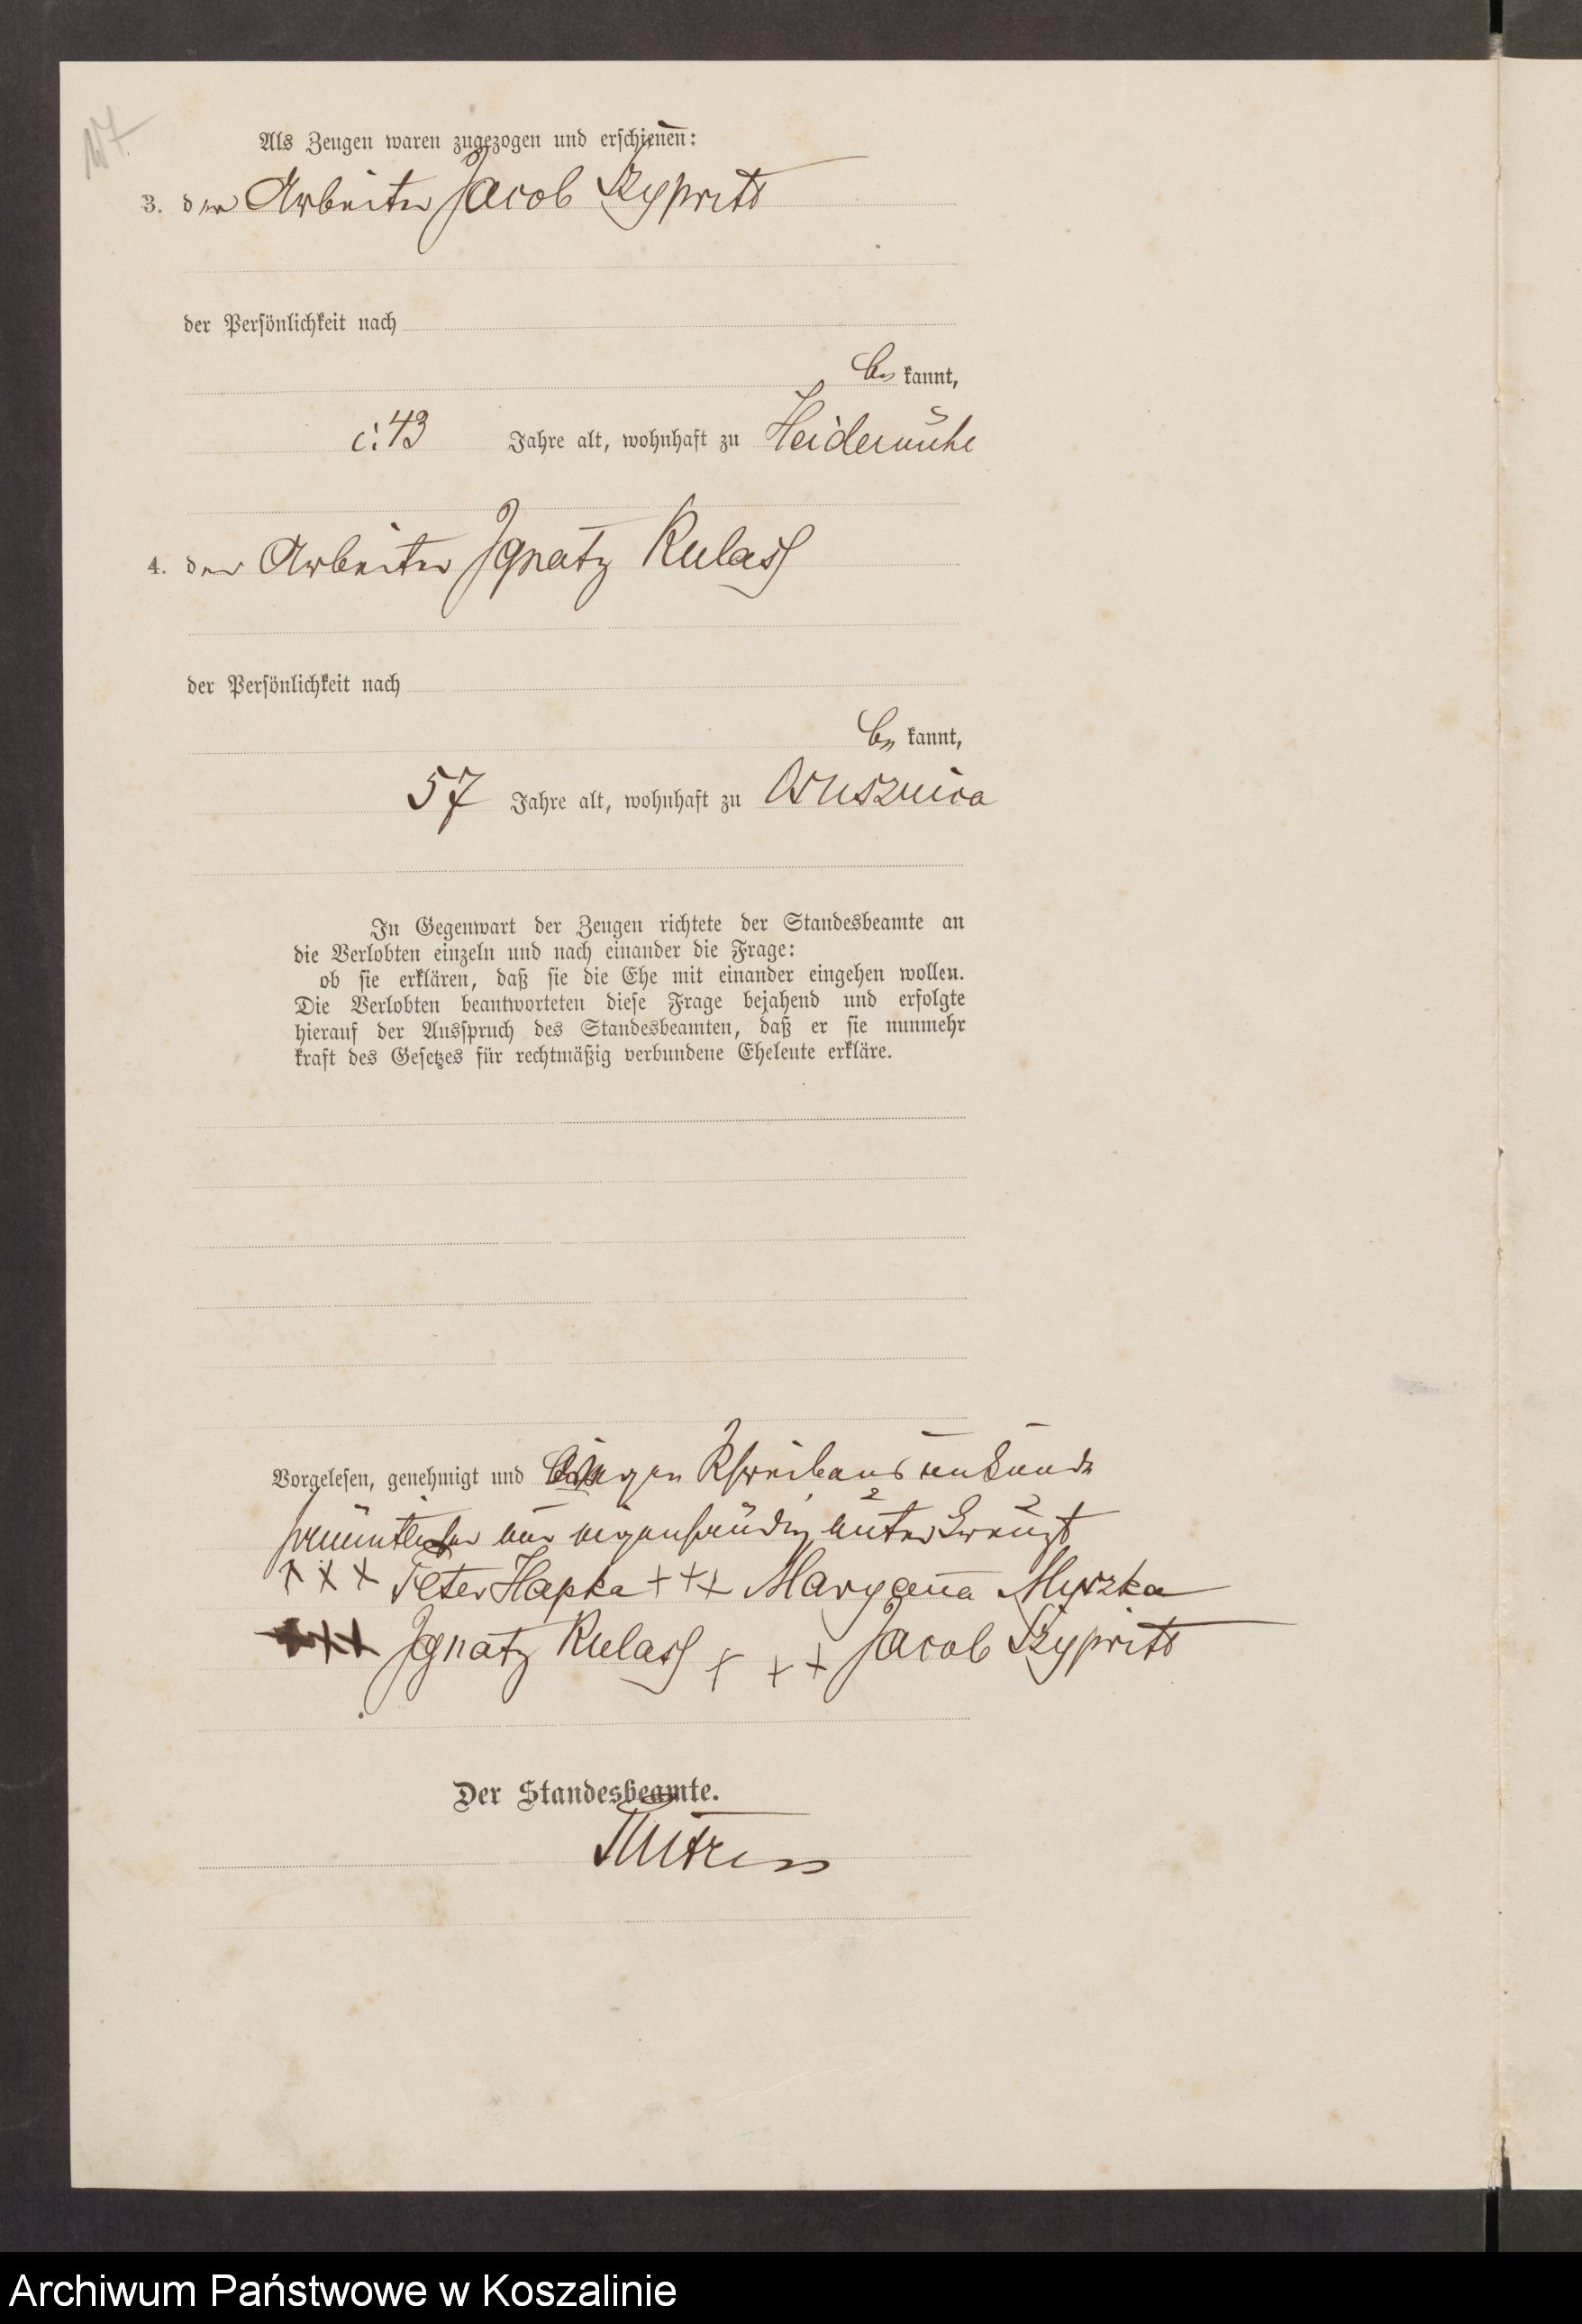 Als Zeugen waren zugezogen und erschienen:
3. der Arbeiter Jacob
der Persönlichkeit nach
be kannt,
c: 43 Jahre alt, wohnhaft zu
4. der Arbeiter Ignatz Kulass
der Persönlichkeit nach
be kannt,
57 Jahre alt, wohnhaft zu Ossusznica
In Gegenwart der Zeugen richtete der Standesbeamte an
die Verlobten einzeln und nach einander die Frage:
ob sie erklären, daß sie die Ehe mit einander eingehen wollen.
Die Verlobten beantworteten diese Frage bejahend und erfolgte
hierauf der Ausspruch des Standesbeamten, daß er sie nunmehr
kraft des Gesetzes für rechtmäßig verbundene Eheleute erkläre.
Vorgelesen, genehmigt und wegen Schreibensunkunde
sämmtlicher nur eigenhändig unterkreuzt
+ + + Peter Hapka + + + Maryanna Myszka
+ + + Ignatz Kulass + + + Jacob
Der Standesbeamte.
Archiwum Państwowe w Koszalinie